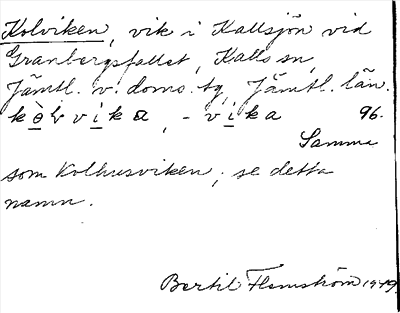 Kolviken, vik i Kallsjön vid
Granbergsfallet, Kalls sn,
Jämtl. v. doms. tg, Jämtl. län.
vika, -vika 96.
Samma
som Kolhusviken, se detta
namn.
Bertil Flemström 1949.